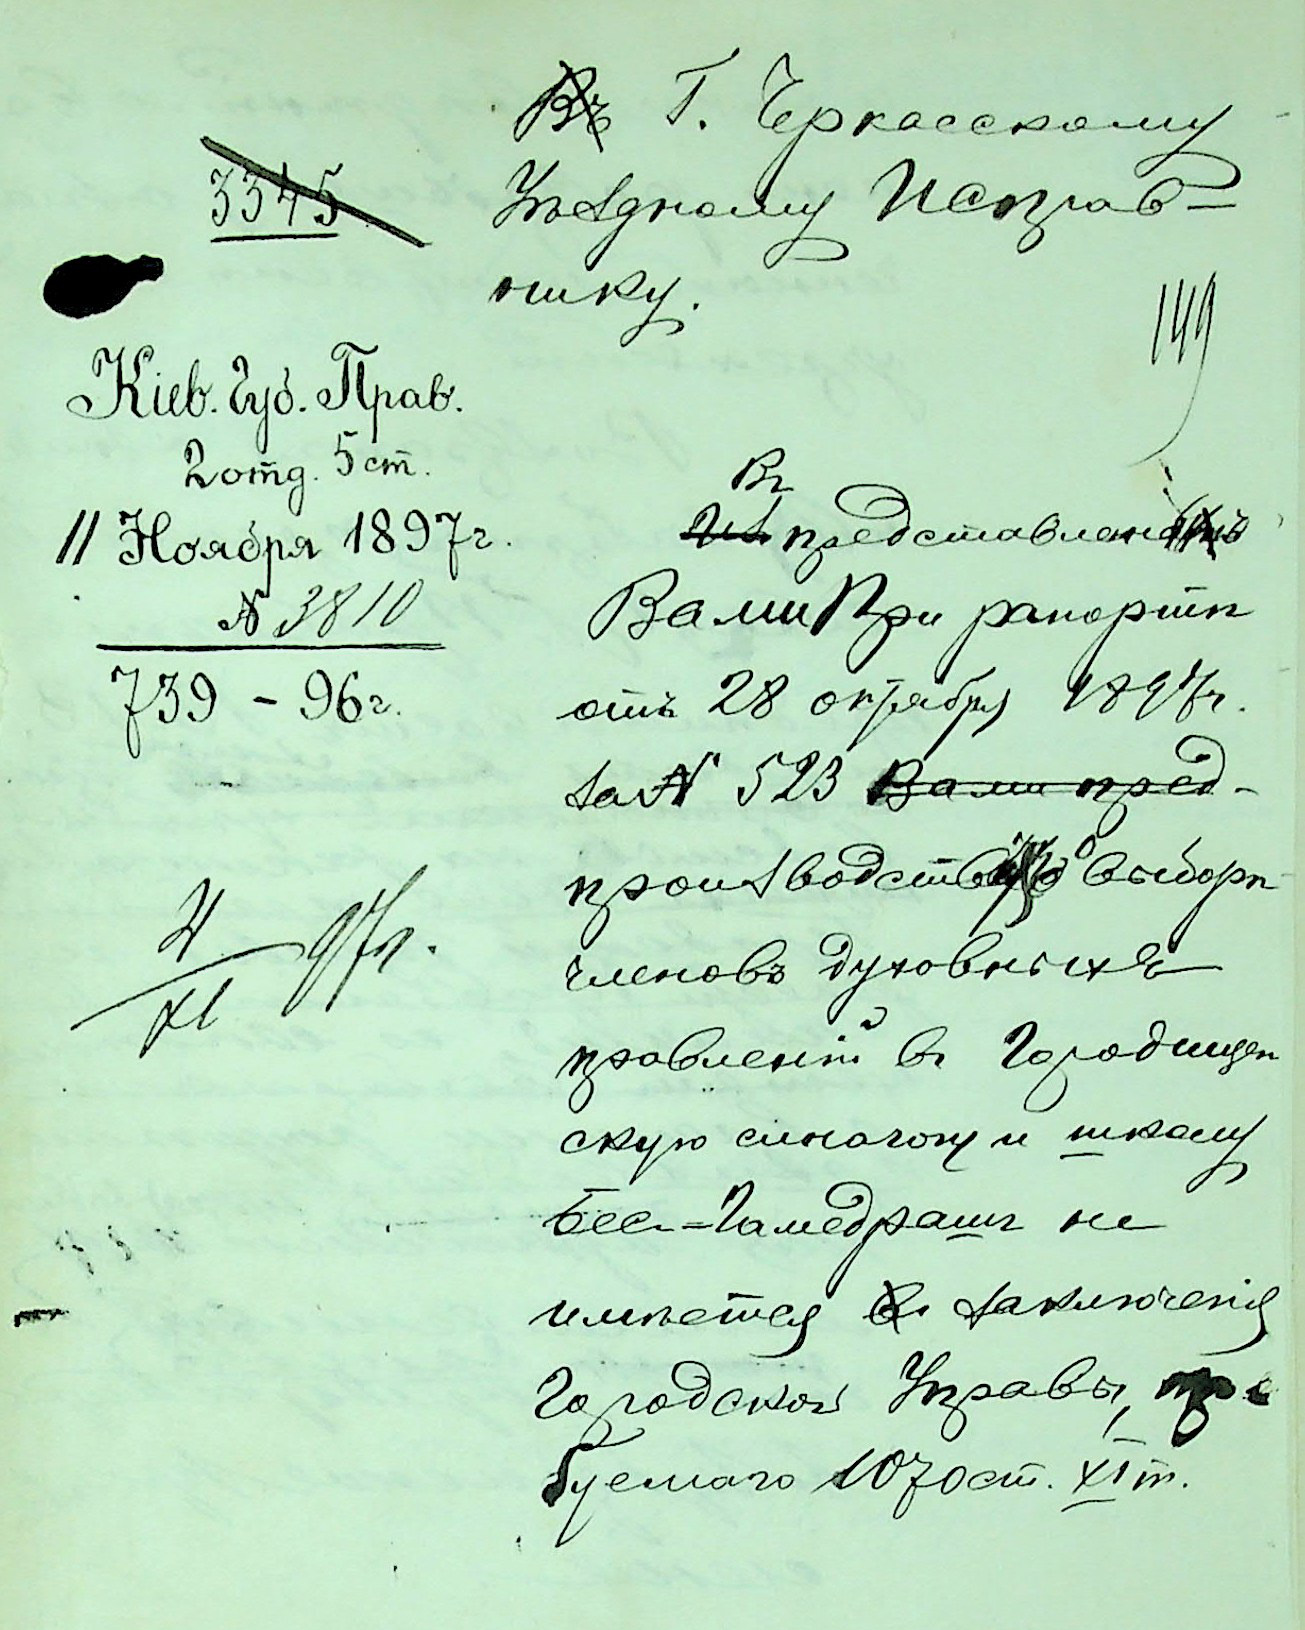 Въ Г. Черкасскому
3345
Уѣздному Исправ-
нику.
149
Кіев. Губ. Прав.
2 отд. 5 ст.
11 Ноября 1897 г.
№ 3810
739 - 96 г.
4/XI 97 г.
Въ
Из представленно
Вами при рапортѣ
отъ 28 октября 1897 г.
за № 523 Вами пред-
производствѣ о выборѣ
членовъ духовныхъ
правленій въ Городищен
скую синагогу и школу
Бес-Гамедрашъ не
имѣется въ заключенія
Городской Управы, тре
буемаго 1070 ст. XI т.